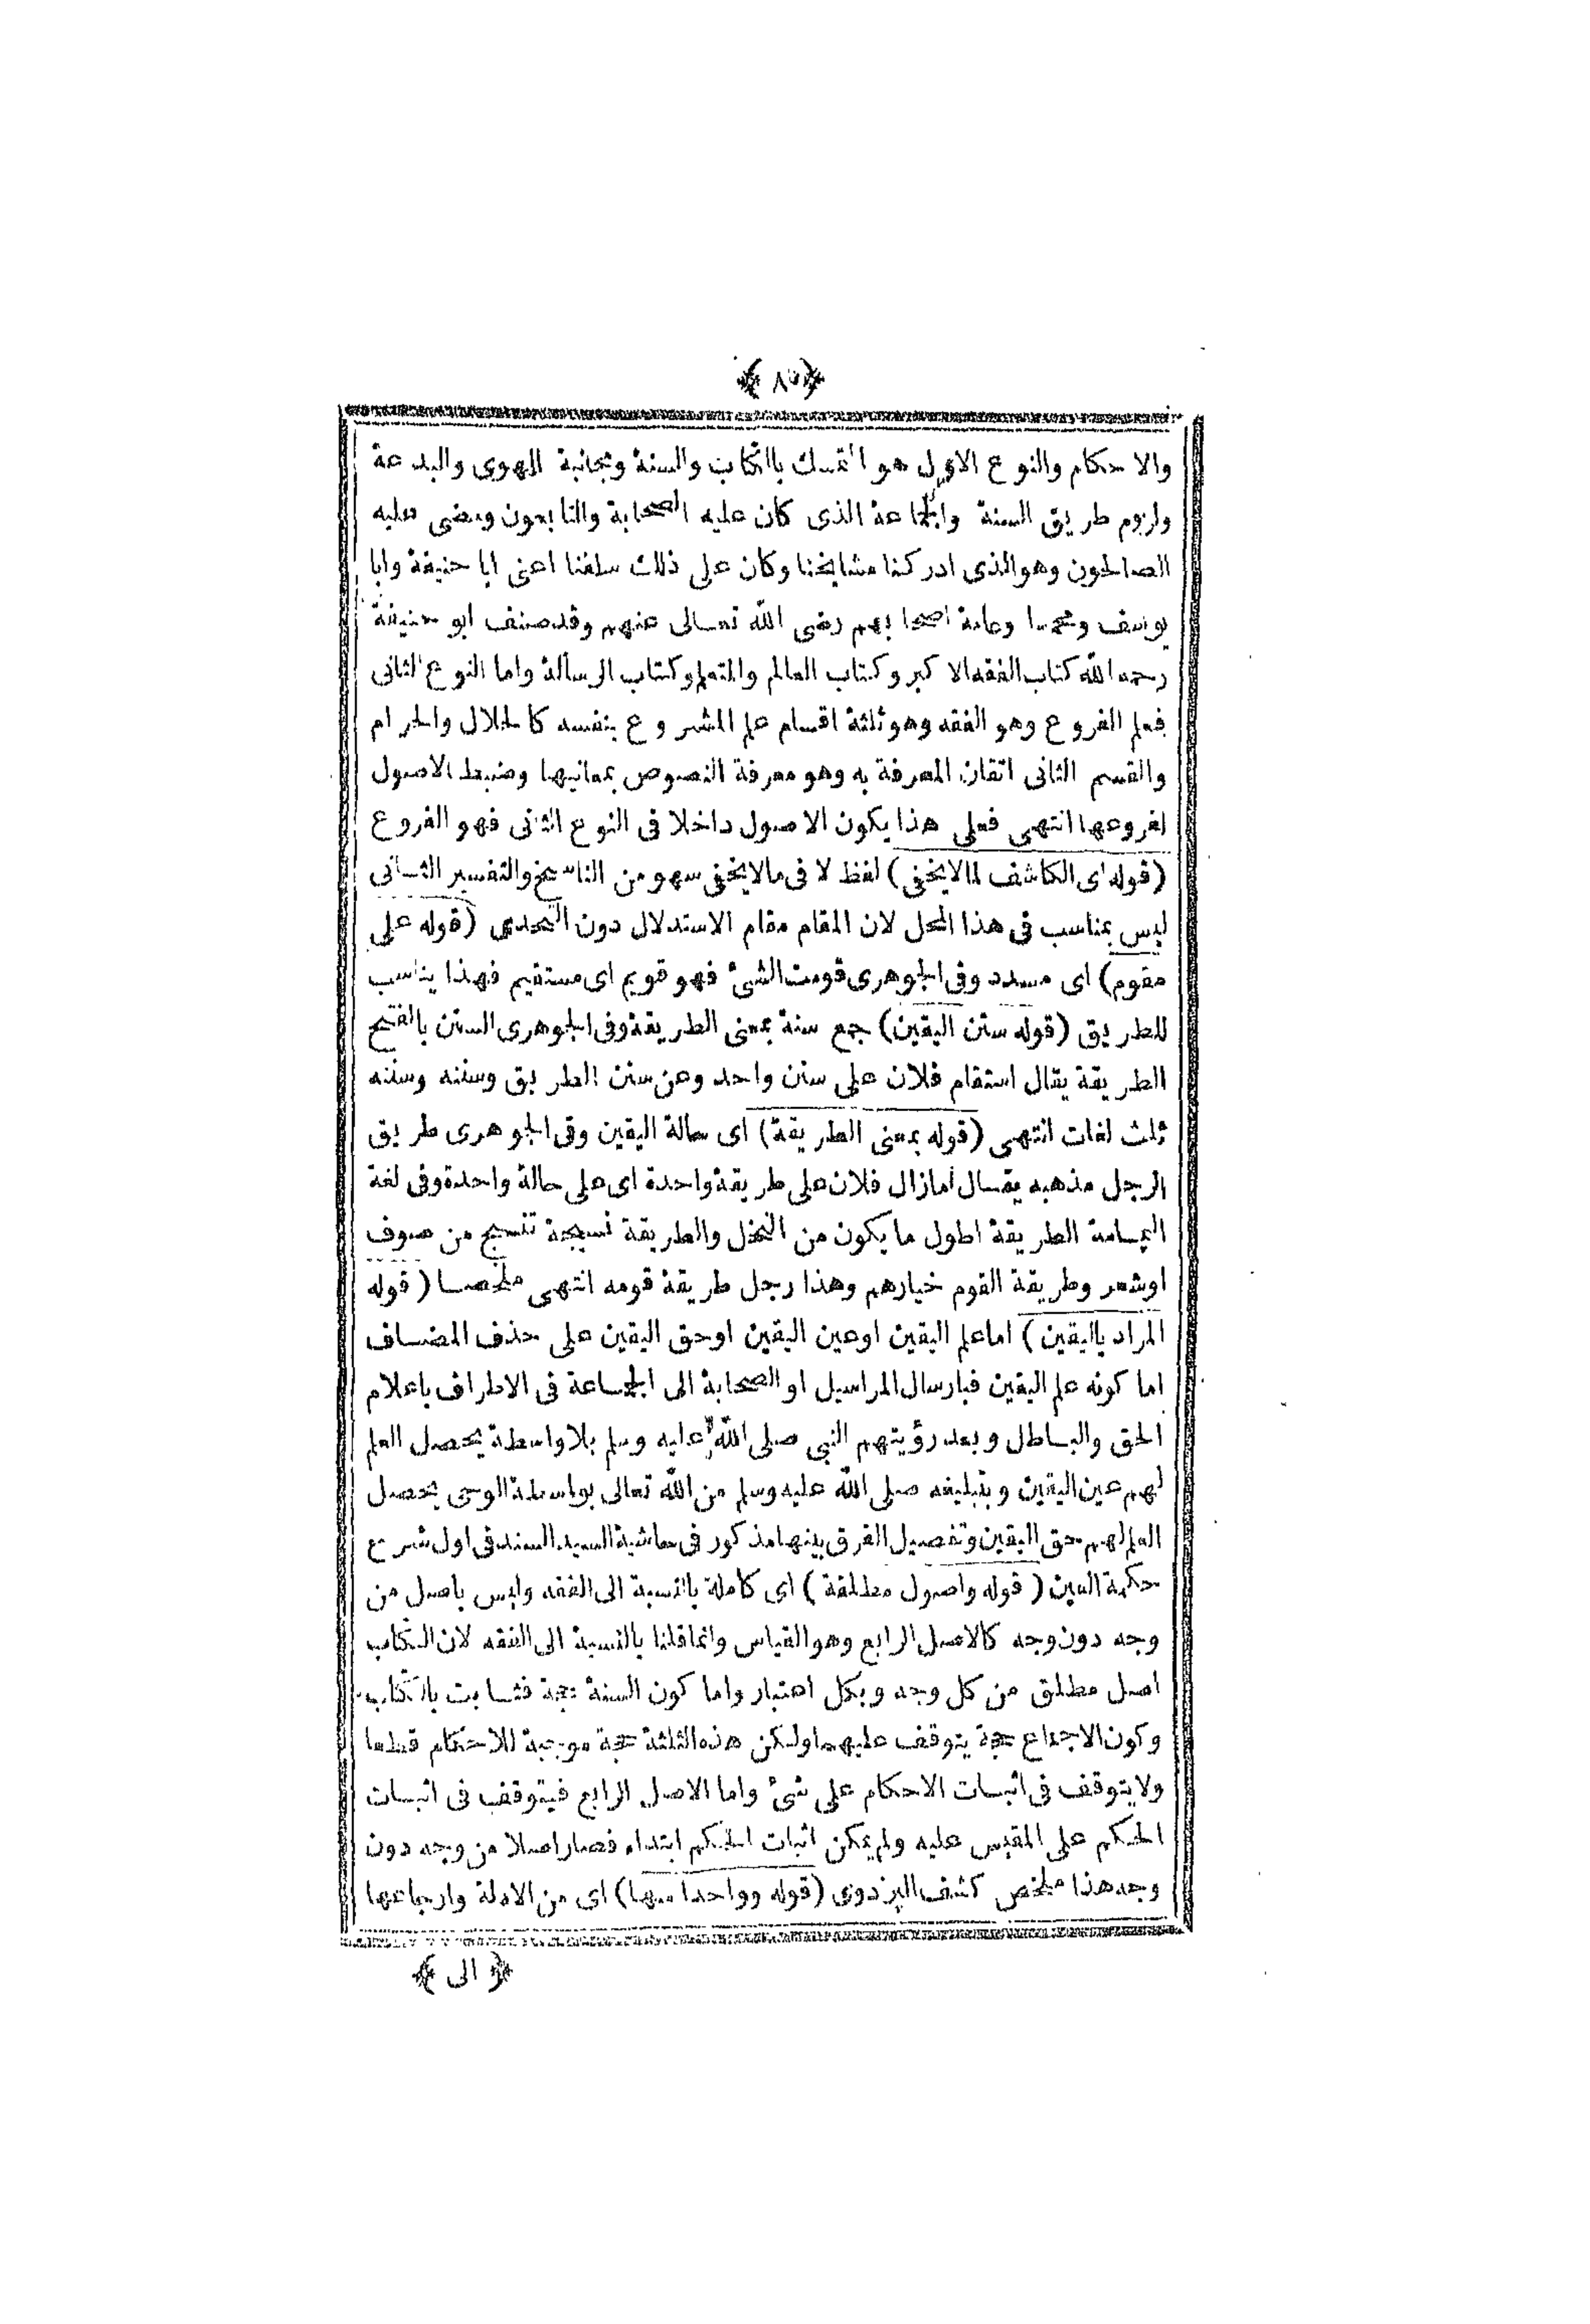 والاحكام والنوع الاول هو التمسك بالكتاب والسنة ومجانبة الهوى والبدعة
ولزوم طريق السنة والجماعة الذى كان عليه الصحابة والتابعون ومضى عليه
الصالحون وهو الذى ادركنا مشايخنا وكان على ذلك سلفنا اعنى ابا حنيفة وابا
يوسف ومحمدا وعامة اصحابهم رضى الله تعالى عنهم وقد صنف ابو حنيفة
رحمه الله كتاب الفقه الاكبر وكتاب العالم والمتعلم وكتاب الرسالة واما النوع الثانى
فعلم الفروع وهو الفقه وهو ثلثة اقسام علم المشروع بنفسه كالحلال والحرام
والقسم الثانى اتقان المعرفة به وهو معرفة النصوص بمعانيها وضبط الاصول
لفروعها انتهى فعلى هذا يكون الاصول داخلا فى النوع الثانى فهو الفروع
(قوله اى الكاشف لمالايخفى) لفظ لا فى مالايخفى سهو من الناسخ والتفسير الثانى
ليس بمناسب فى هذا المحل لان المقام مقام الاستدلال دون التحدى (قوله على
مقوم) اى مسدد وفى الجوهرى قومت الشئ فهو قويم اى مستقيم فهذا يناسب
للطريق (قوله سنن اليقين) جمع سنة بمعنى الطريقة وفى الجوهرى السنن بالفتح
الطريقة يقال استقام فلان على سنن واحد وعن سنن الطريق وسننه وسننه
ثلث لغات انتهى (قوله بمعنى الطريقة) اى حالة اليقين وفى الجوهرى طريق
الرجل مذهبه يقال مازال فلان على طريقة واحدة اى على حالة واحدة وفى لغة
اليمامة الطريقة اطول ما يكون من النخل والطريقة نسيجة تنسج من صوف
اوشعر وطريقة القوم خيارهم وهذا رجل طريقة قومه انتهى ملخصا (قوله
المراد باليقين) اما علم اليقين اوعين اليقين اوحق اليقين على حذف المضاف
اما كونه علم اليقين فبارسال المراسيل او الصحابة الى الجماعة فى الاطراف باعلام
الحق والباطل وبعد رؤيتهم النبى صلى الله عليه وسلم بلا واسطة يحصل العلم
لهم عين اليقين وبتبليغه صلى الله عليه وسلم من الله تعالى بواسطة الوحى يحصل
العلم لهم حق اليقين وتفصيل الفرق بينها مذكور فى حاشية السيد السند فى اول شرح
حكمة العين (قوله واصول مطلقة) اى كاملة بالنسبة الى الفقه وليس باصل من
وجه دون وجه كالاصل الرابع وهو القياس وانما قلنا بالنسبة الى الفقه لان الكتاب
اصل مطلق من كل وجه وبكل اعتبار واما كون السنة حجة فثابت بالكتاب
وكون الاجماع حجة يتوقف عليهما ولكن هذه الثلثة حجة موجبة للاحكام قطعا
ولا يتوقف فى اثبات الاحكام على شئ واما الاصل الرابع فيتوقف فى اثبات
الحكم على المقيس عليه ولم يمكن اثبات الحكم ابتداء فصار اصلا من وجه دون
وجه هذا ملخص كشف البزدوى (قوله وواحدا منها) اى من الادلة وارجاعها
﴿ الى ﴾